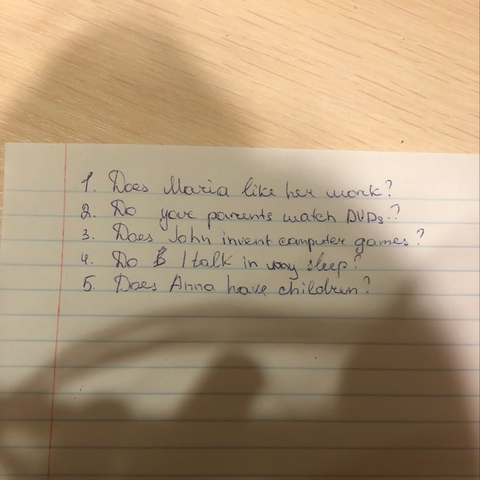 1. Does Maria like her work?
2. Do your parents watch DVDs?
3. Does John invent computer games?
4. Do I talk in my sleep?
5. Does Anna have children?